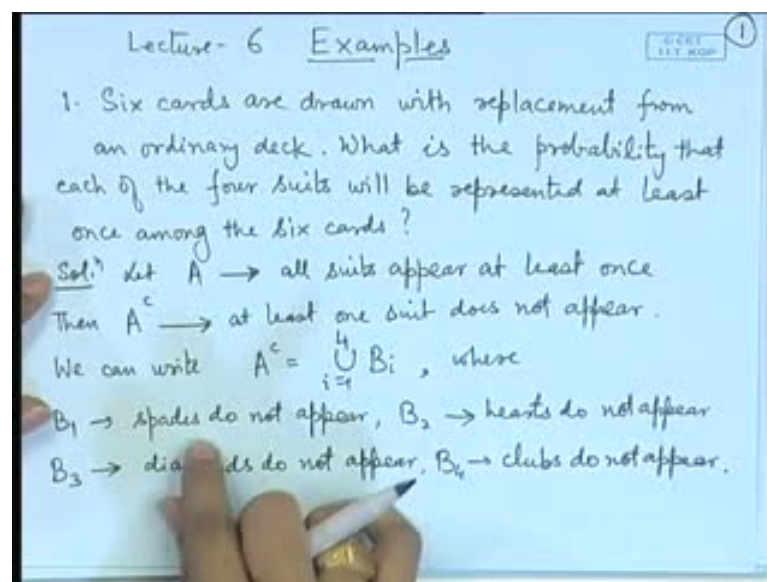 Lecture - 6 Examples
1
I.I.T. KGP
1. Six cards are drawn with replacement from
an ordinary deck. What is the probability that
each of the four suits will be represented at least
once among the six cards?
Sol.ⁿ Let A → all suits appear at least once
Then Aᶜ → at least one suit does not appear.
We can write Aᶜ = ⋃ᵢ₌₁⁴ Bᵢ , where
B₁ → spades do not appear, B₂ → hearts do not appear
B₃ → dia ds do not appear, B₄ → clubs do not appear.